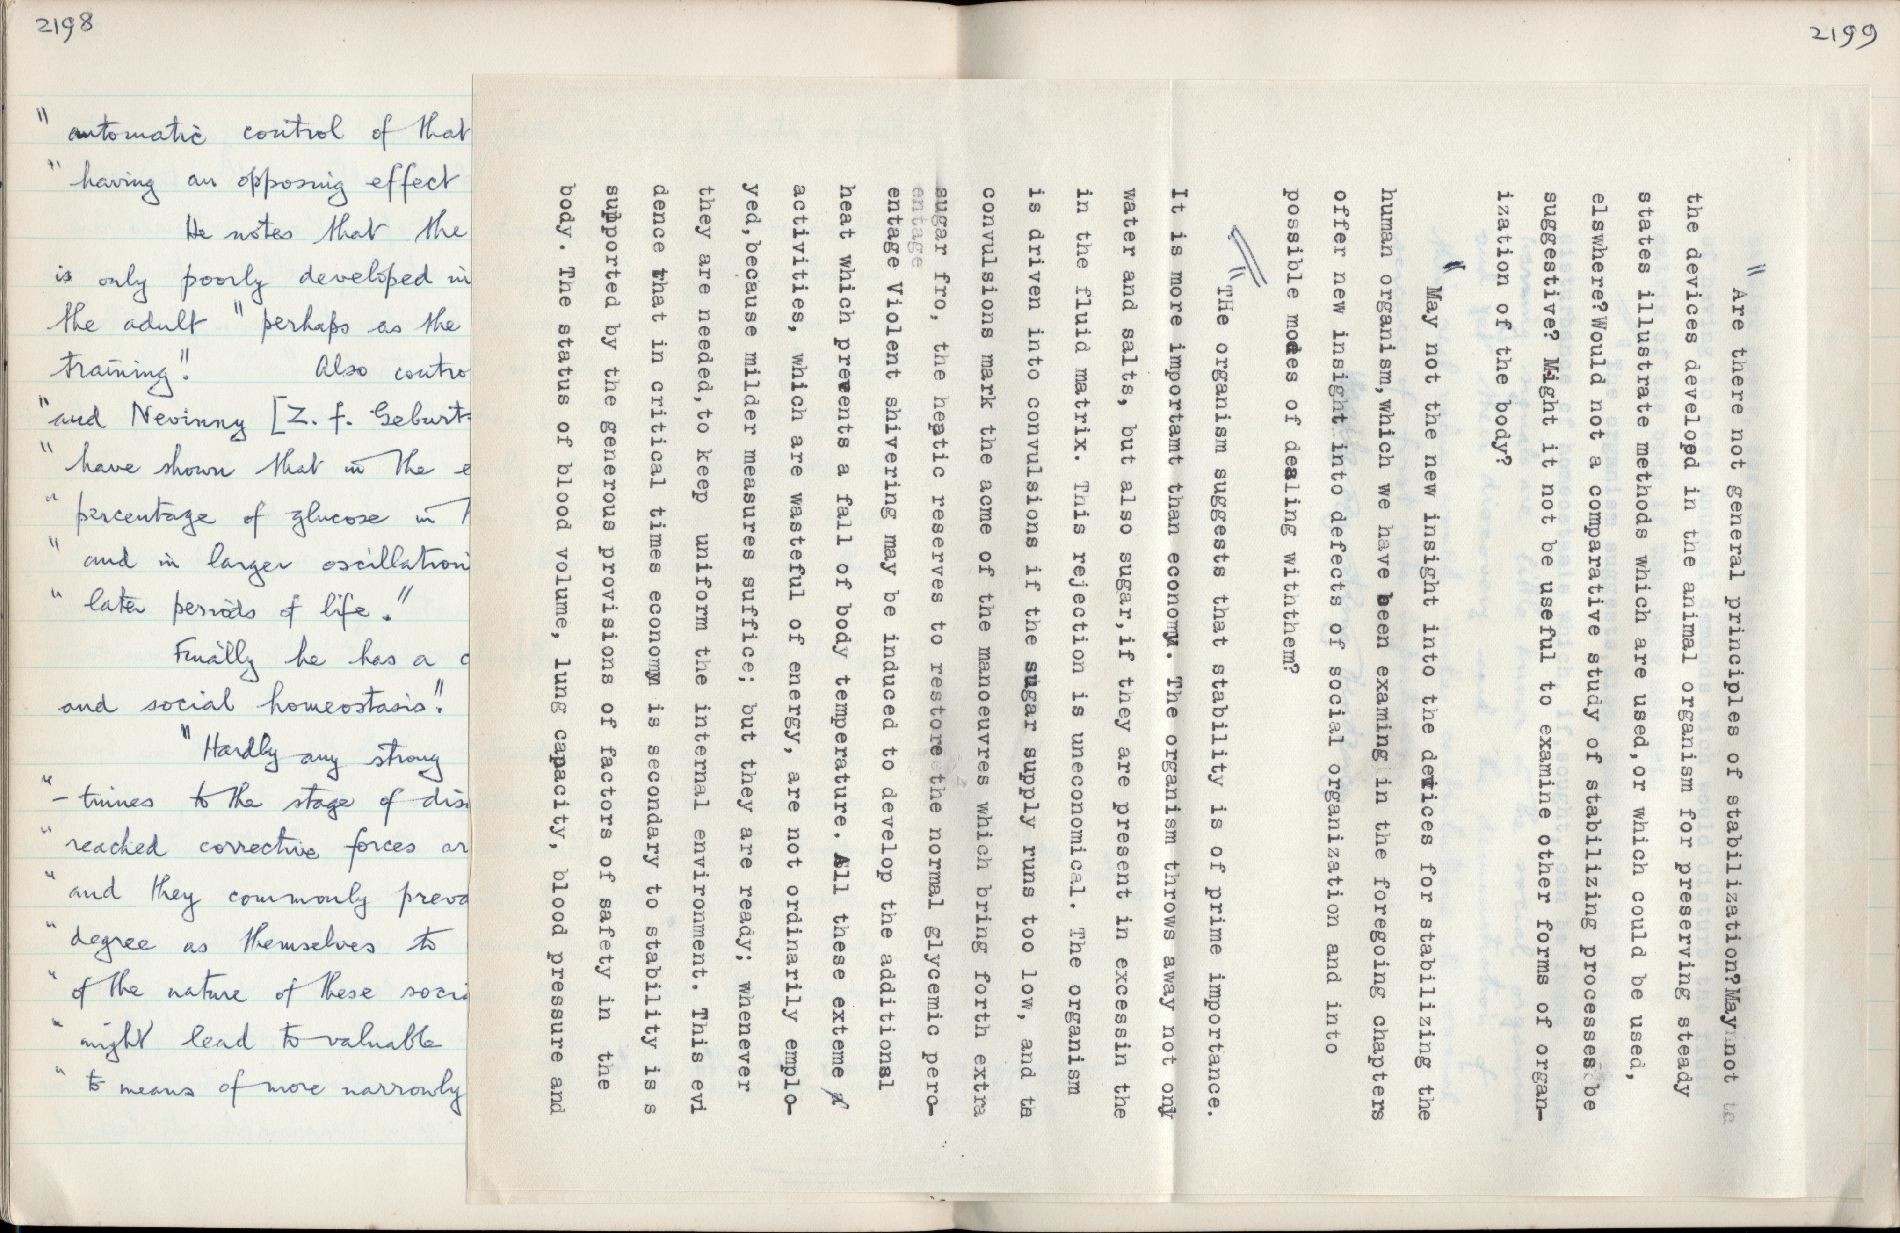 2198
" automatic control of that
" having an opposing effect
He notes that the
is only poorly developed in
the adult " perhaps as the
training".      Also contro
"and Nevinny [Z. f. Geburt
" have shown that in the e
" percentage of glucose in
" and in larger oscillation
" later periods of life."
Finally he has a c
and social homeostasis".
"Hardly any strong
"-trines to the stage of dis
" reached corrective forces ar
" and they commonly preva
" degree as themselves to
" of the nature of these soci
" might lead to valuable
" to means of more narrowly
2199
" Are there not general principles of stabilization?May not
the devices developd in the animal organism for preserving steady
states illustrate methods which are used,or which could be used,
elswhere?Would not a comparative study of stabilizing processes be
suggestive? Might it not be useful to examine other forms of organ-
ization of the body?
" May not the new insight into the devices for stabilizing the
human organism,which we have been examing in the foregoing chapters
offer new insight into defects of social organization and into
possible modes of dealing withthem?
"THe organism suggests that stability is of prime importance.
It is more importamt than economy. The organism throws away not ony
water and salts, but also sugar,if they are present in excessin the
in the fluid matrix. This rejection is uneconomical. The organism
is driven into convulsions if the sugar supply runs too low, and th
convulsions mark the acme of the manoeuvres which bring forth extra
sugar fro, the heptic reserves to restore the normal glycemic perc-
entage
entage Violent shivering may be induced to develop the additionsl
heat which prevents a fall of body temperature. All these exteme
activities, which are wasteful of energy, are not ordinarily emplo-
yed,because milder measures suffice; but they are ready; whenever
they are needed,to keep uniform the internal environment. This evi
dence that in critical times economy is secondary to stability is s
supported by the generous provisions of factors of safety in the
body. The status of blood volume, lung capacity, blood pressure and